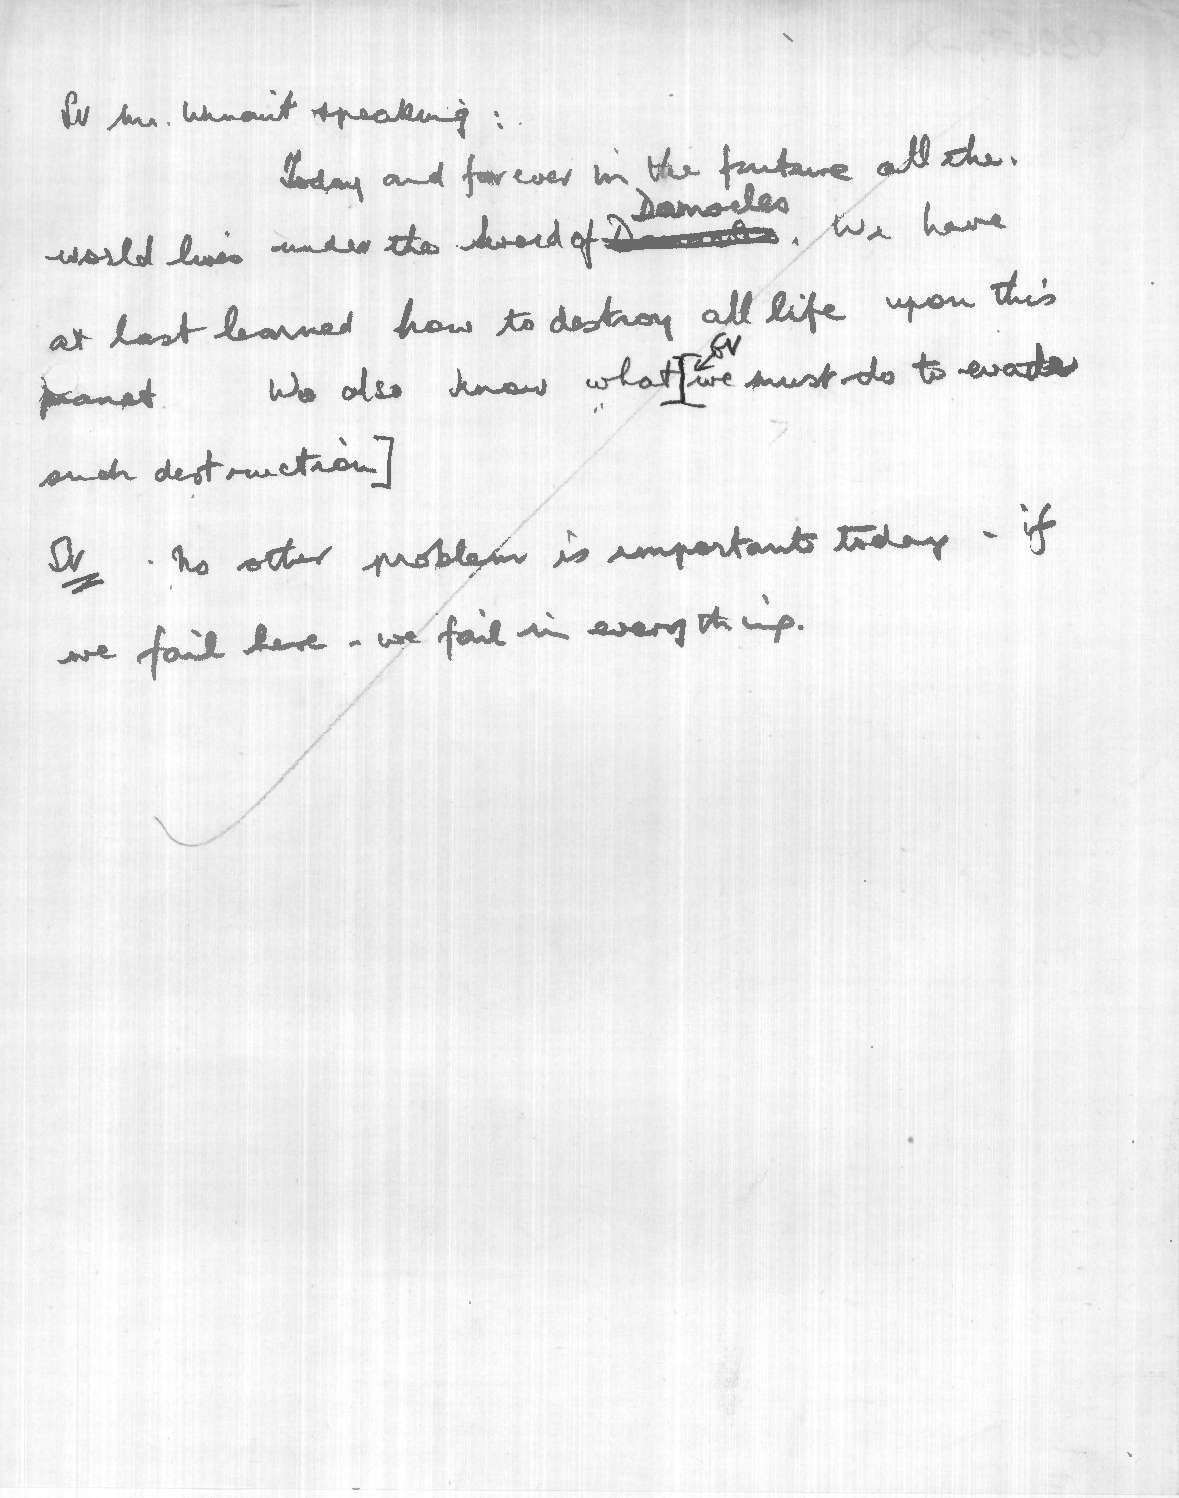 SV Mr. Winant speaking:
Today and forever in the future all the.
world lives under the sword of Damocles. We have
at last learned how to destroy all life upon this
planet We also know what [we must do to evade
SV
such destruction]
SV . No other problem is important today - if
we fail here - we fail in everything.